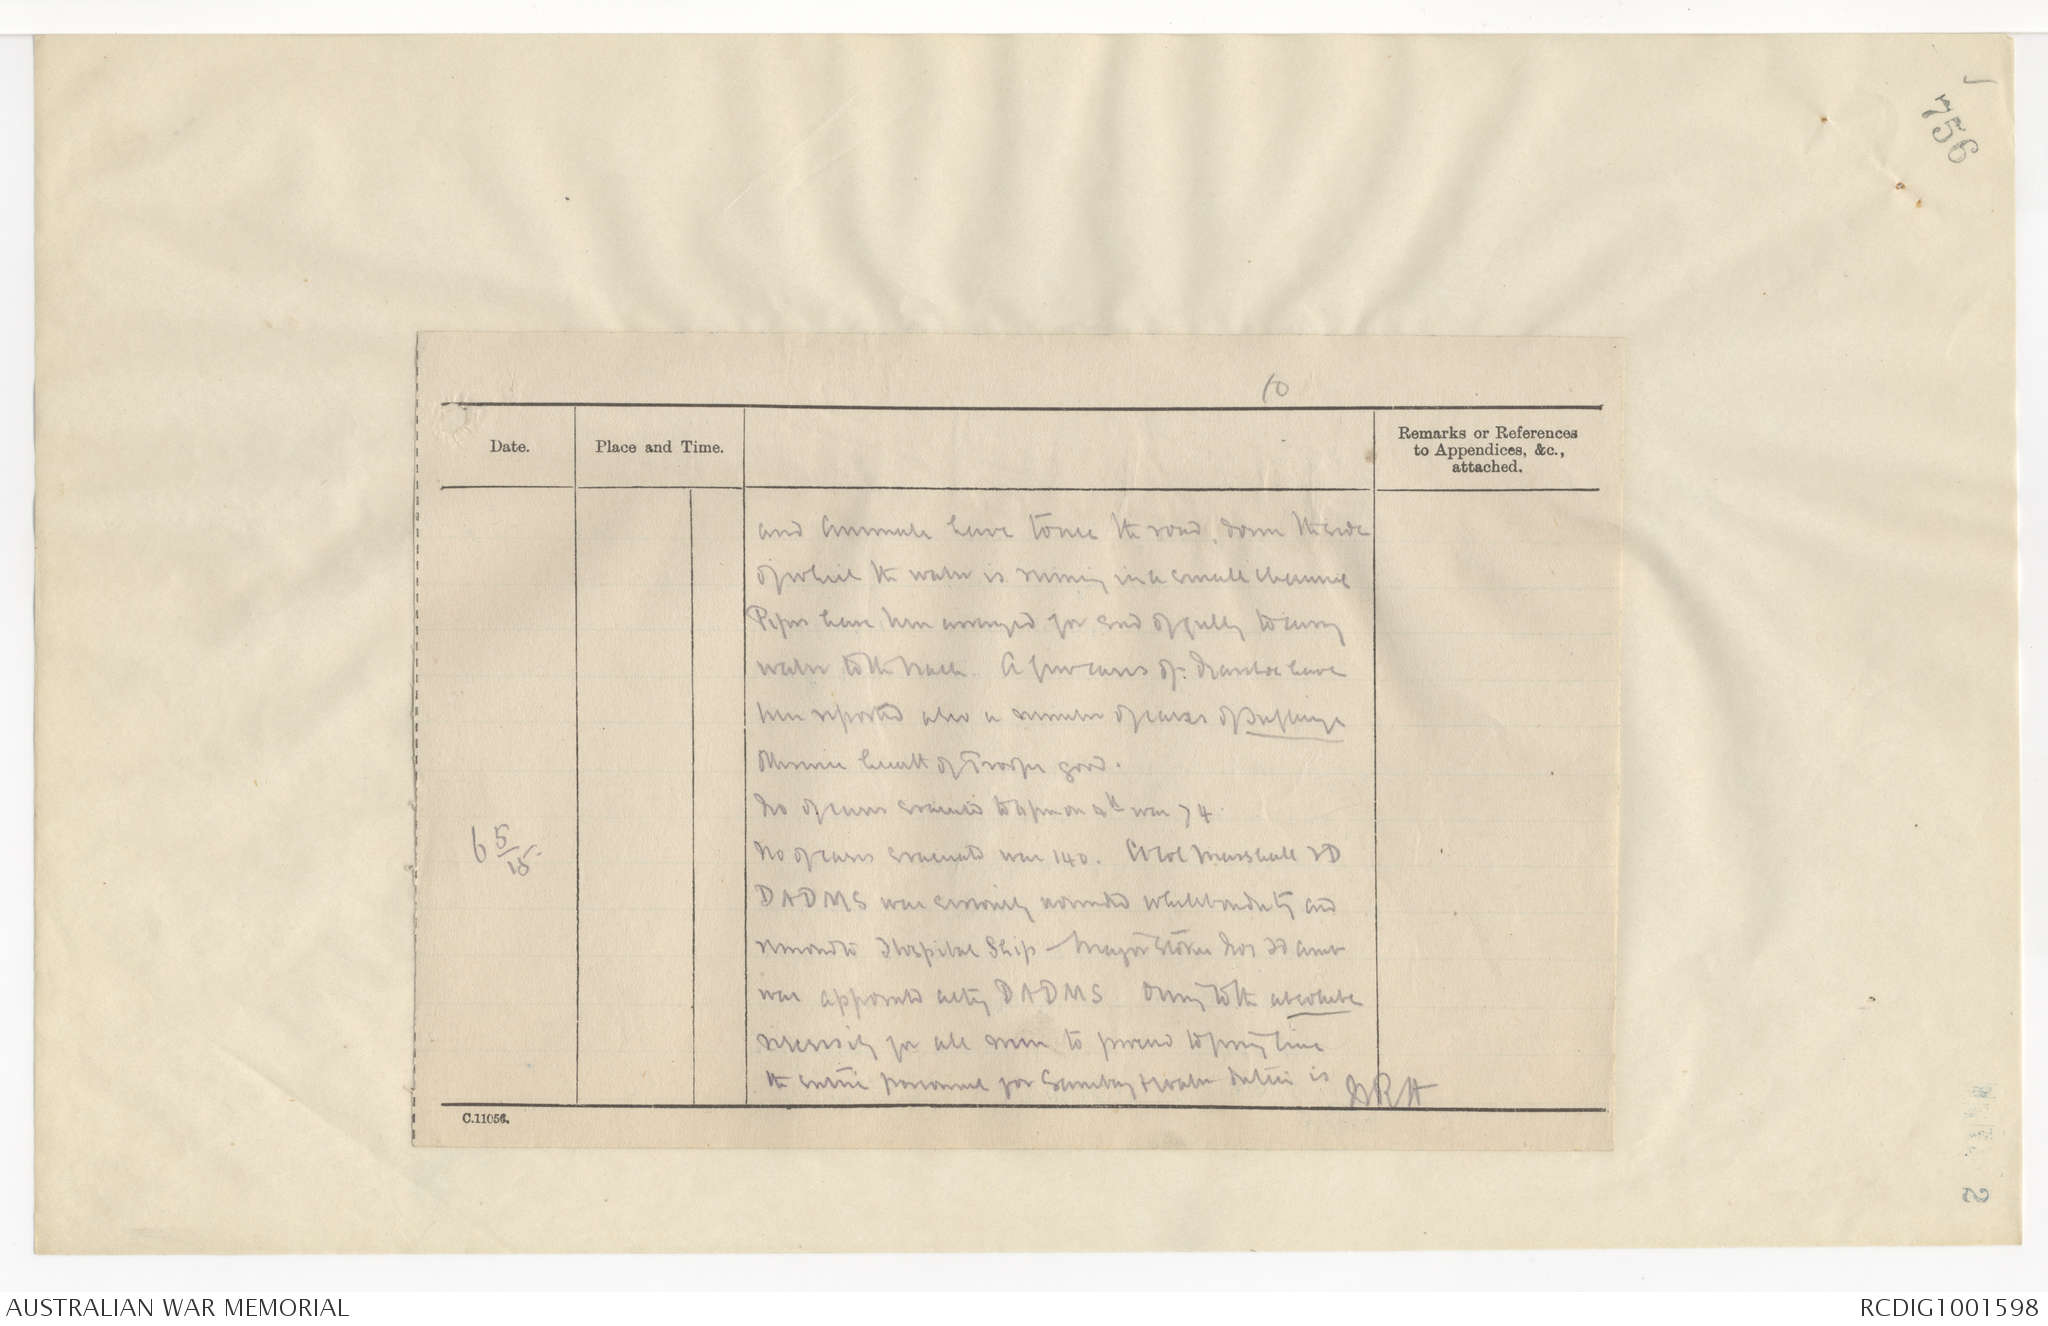 756
10
Date.
Place and Time.
Remarks or References
to Appendices, &c.,
attached.
and animals have to use the road, down the side
of which the water is running in a small channel
Pipes have been arranged for end of gully to carry
water to the beach. A few cases of Diarrhoea have
been reported also a number of cases of
Otherwise health of Troops good.
No of cases evacuated to 4 pm on 4th was 74.
6 5/15.
No of cases evacuated was 140. Marshall
DADMS was seriously wounded whilst on duty and
removed to Hospital Ship - Major Stokes No 1 Fd Amb
was appointed acting DADMS Owing to the absolute
necessity for all men to proceed to firing line
the entire personnel for Sanitary & water duties is
C.11056.
2
AUSTRALIAN WAR MEMORIAL
RCDIG1001598